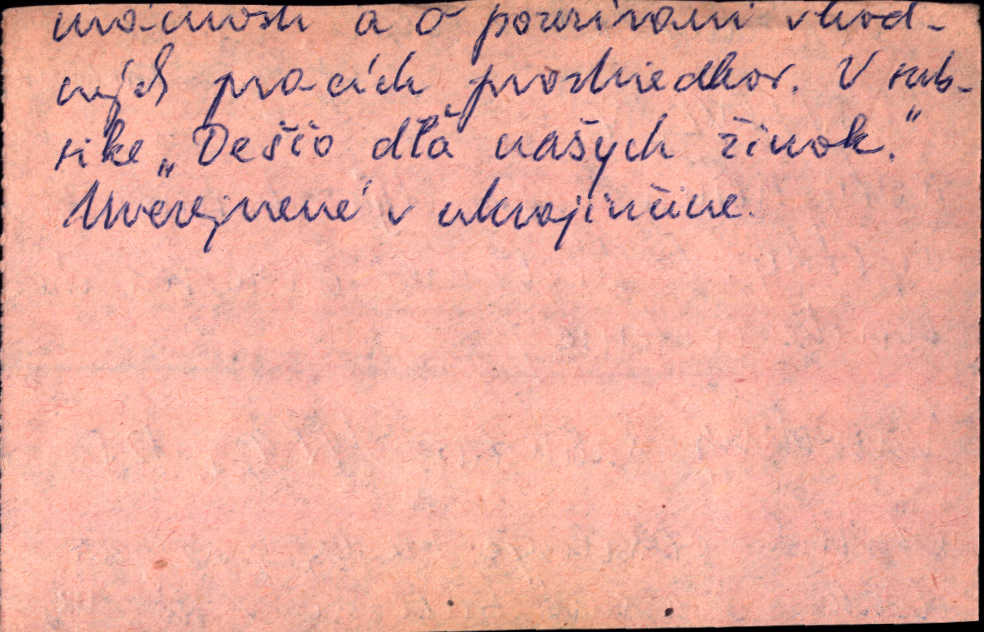 mácnosti a o používaní vhod-
ných pracích prostriedkov. V rub-
rike „Deščo dľa našych žinok."
Uverejnené v ukrajinčine.